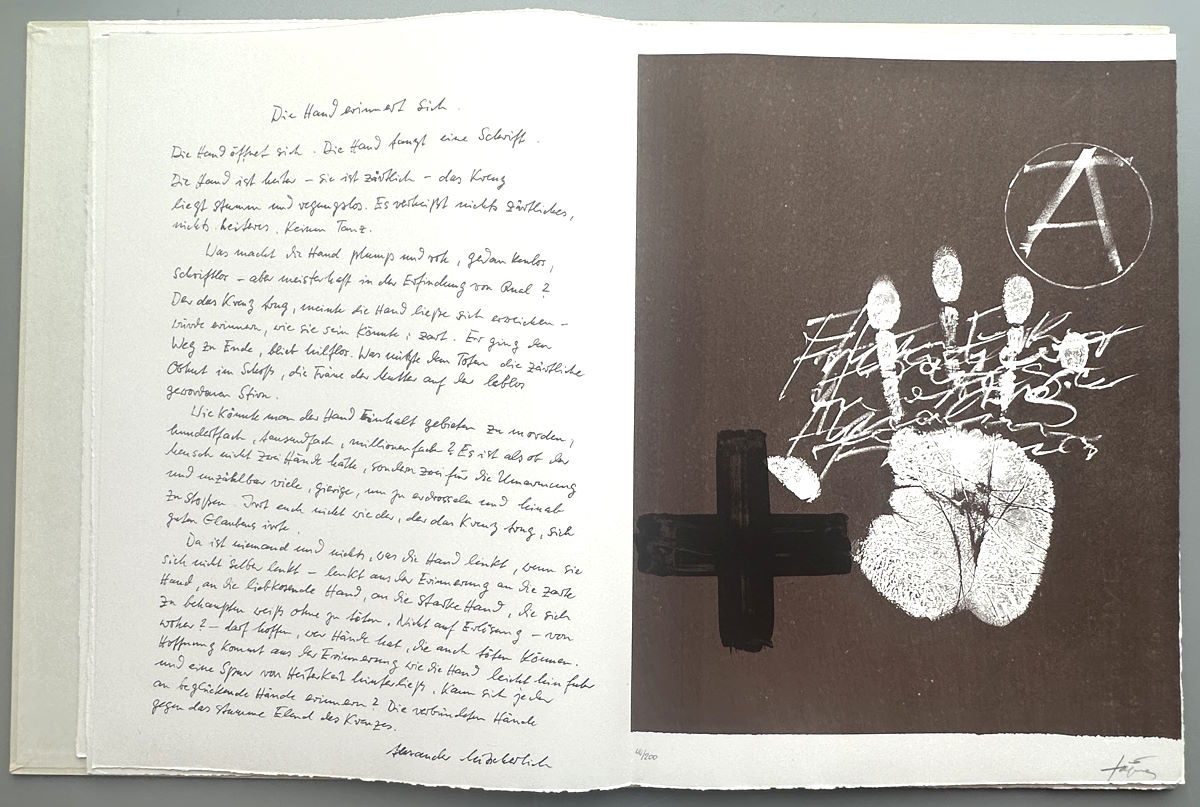 Die Hand erinnert sich.
Die Hand öffnet sich. Die Hand fängt eine Schrift.
Die Hand ist heiter – sie ist zärtlich – das Kreuz
liegt stumm und regungslos. Es verheißt nichts Zärtliches,
nichts Heiteres. Keinen Tanz.
Was macht die Hand plump und roh, gedankenlos,
schriftlos – aber meisterhaft in der Erfindung von Qual?
Der das Kreuz trug, meinte die Hand ließe sich erweichen –
würde erinnern, wie sie sein könnte: zart. Er ging den
Weg zu Ende, blieb hilflos. Was nützte dem Toten die zärtliche
Obhut im Schoß, die Träne der Mutter auf der leblos
gewordenen Stirn.
Wie könnte man der Hand Einhalt gebieten zu morden,
hundertfach, tausendfach, millionenfach? Es ist als ob der
Mensch nicht zwei Hände hätte, sondern zwei für die Umarmung
und unzählbar viele, gierige, um zu erdrosseln und hinab
zu stoßen. Irrt euch nicht wieder, der das Kreuz trug, sich
guten Glaubens irrte.
Da ist niemand und nichts, was die Hand lenkt, wenn sie
sich nicht selber lenkt – lenkt aus der Erinnerung an die zarte
Hand, an die liebkosende Hand, an die starke Hand, die sich
zu behaupten weiß ohne zu töten. Nicht auf Erlösung – von
woher? – darf hoffen, wer Hände hat, die auch töten können.
Hoffnung kommt aus der Erinnerung wie die Hand leicht hinfuhr
und eine Spur von Heiterkeit hinterließ. Kann sich jeder
an beglückende Hände erinnern? Die verbündeten Hände
gegen das stumme Elend des Kreuzes.
Alexander Mitscherlich
A
/200
Tàpies